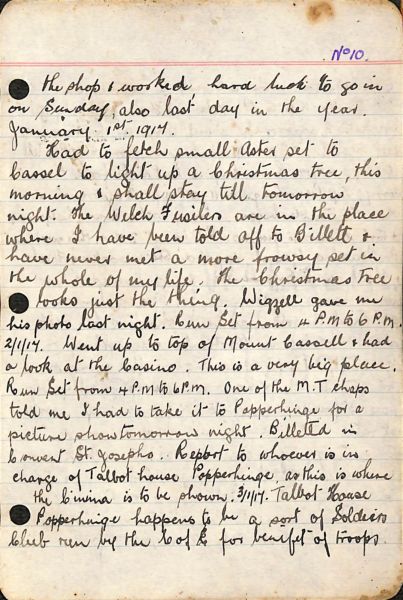 No 10.
the shop & worked, hard luck to go in
on Sunday, also last day in the year.
January 1st 1917.
Had to fetch small Aster set to
Cassel to light up a Christmas tree, this
morning & shall stay till tomorrow
night. The Welch Fusilers are in the place
where I have been told off to Billett &
have never met a more frowsy set in
the whole of my life. The Christmas Tree
looks just the thing. Wigzell gave me
his photo last night. Run Set from 4 P.M to 6 P.M.
2/1/17. Went up to top of Mount Cassell & had
a look at the Casino. This is a very big place.
Run Set from 4 P.M to 6 P.M. One of the M.T chaps
told me I had to take it to Popperhinge for a
picture show tomorrow night. Billeted in
Convent St. Josephs. Report to whoever is in
charge of Talbot house Popperhinge, as this is where
the Cinima is to be shown. 3/1/17. Talbot House
Popperhinge happens to be a sort of Soldiers
Club run by the C of E for benefit of troops.